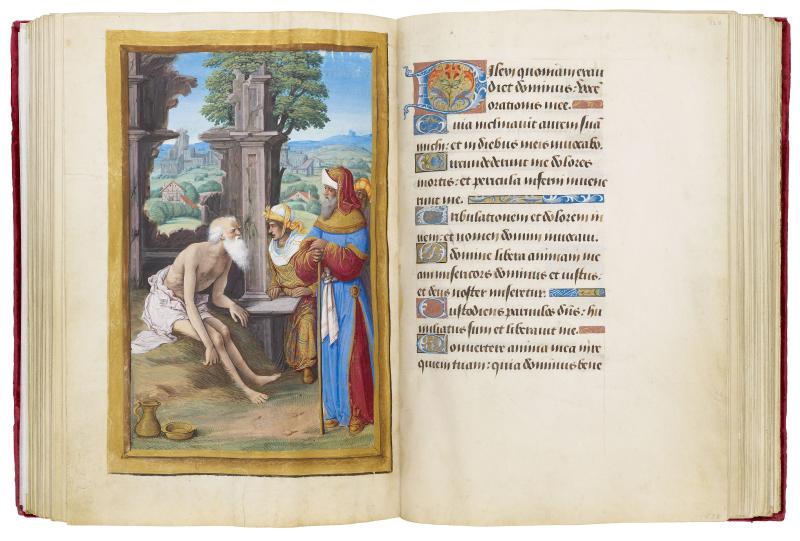 Dilexi quoniam exau
diet dominus: vocē
orationis mee.
Quia inclinavit aurem suā
michi: et in diebus meis invocabo.
Circundederunt me dolores
mortis: et pericula inferni invene
runt me.
Tribulationem et dolorem in
veni: et nomen domini invocavi.
O domine libera animam me
am misericors dominus et iustus:
et deus noster miseretur.
Custodiens parvulos dn̄s: hu
miliatus sum et liberavit me.
Convertere anima mea in re
quiem tuam: quia dominus bene